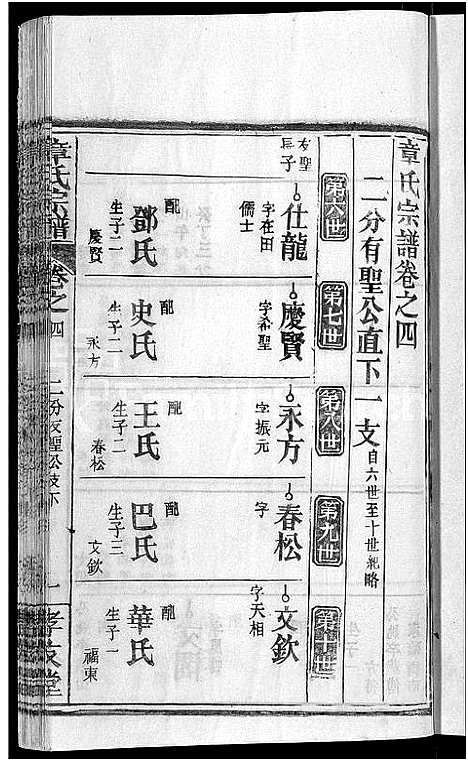 章氏宗譜卷之四
二分有聖公直下一支自六世至十世紀略
第六世
第七世
第八世
第九世
第十世
友聖長子
仕龍
字在田
儒士
配
鄧氏
生子二
慶賢
慶賢
字希聖
配
史氏
生子二
永方
永方
字振元
配
王氏
生子二
春松
春松
字
配
巴氏
生子三
文欽
文欽
字天相
配
華氏
生子一
福東
章氏宗譜
卷之四
二分友聖公支下
一
孝友堂